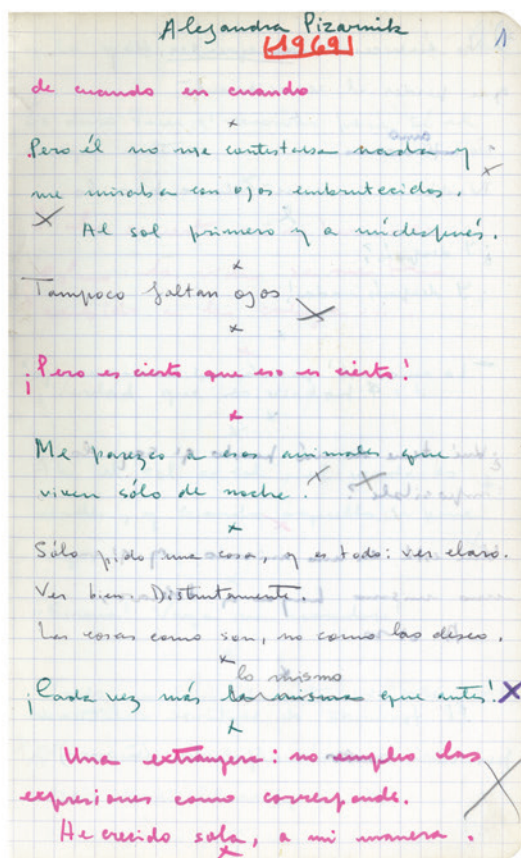 Alejandra Pizarnik
1969
1
de cuando en cuando
Pero él no me contestaba nada y
me miraba con ojos embrutecidos.
Al sol primero y a mí después.
Tampoco faltan ojos
¡Pero es cierto que eso es cierto!
Me parezco a esos animales que
viven sólo de noche.
Sólo pido una cosa, y es todo: ver claro.
Ver bien. Distintamente.
Las cosas como son, no como las deseo.
lo mismo
¡Cada vez más que antes!
Una extranjera: no empleo las
expresiones como corresponde.
He crecido sola, a mi manera.